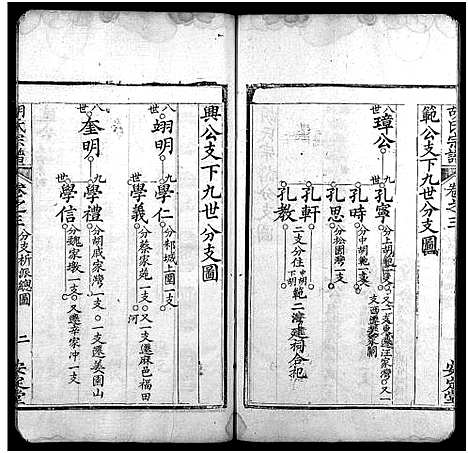 胡氏宗譜
卷之三
範公支下九世分支圖
八世
璋公
九世
孔寧
分上胡範一支
又一支東遷汪家灣
又一支西遷
孔時
分中胡範一支
孔思
分松園灣一支
孔軒
孔教
二支分住中胡下胡範二灣建祠合祀
安定堂
興公支下九世分支圖
八世
翊明
九世
學仁
分邾城上圍一支
學義
分蔡家苑一支
又遷麻邑福田河
八世
奎明
九世
學禮
分胡戚家灣一支
又一遷姜園山
學信
分魏家墩一支
又遷辛家冲一支
胡氏宗譜
卷之三
分支析派總圖
二
安定堂